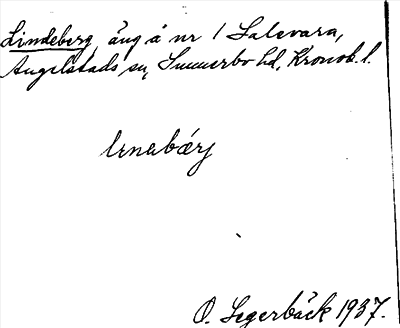 Lindeberg, äng å nr 1 Salevara,
Angelstads sn, Sunnerbo hd, Kronob. l.
O. Segerbäck 1937.